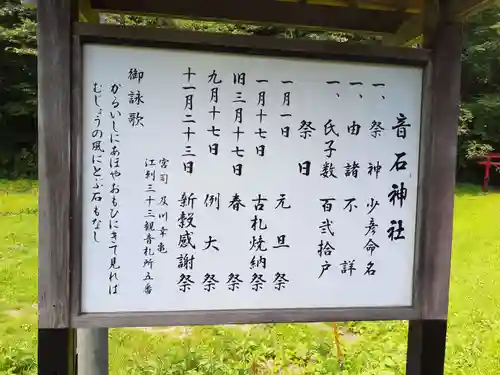 音石神社
一、祭神 少彦命名
一、由諸不詳
一、氏子数 百弐拾戸
祭日
一月一日 元旦祭
一月十七日 古札焼納祭
旧三月十七日 春祭
九月十七日 例大祭
十一月二十三日 新穀感謝祭
宮司 及川幸亀
江刺三十三観音札所五番
御詠歌
かるいしにあほやおもひにきて見れは
むじょうの風にとぶ石もなし